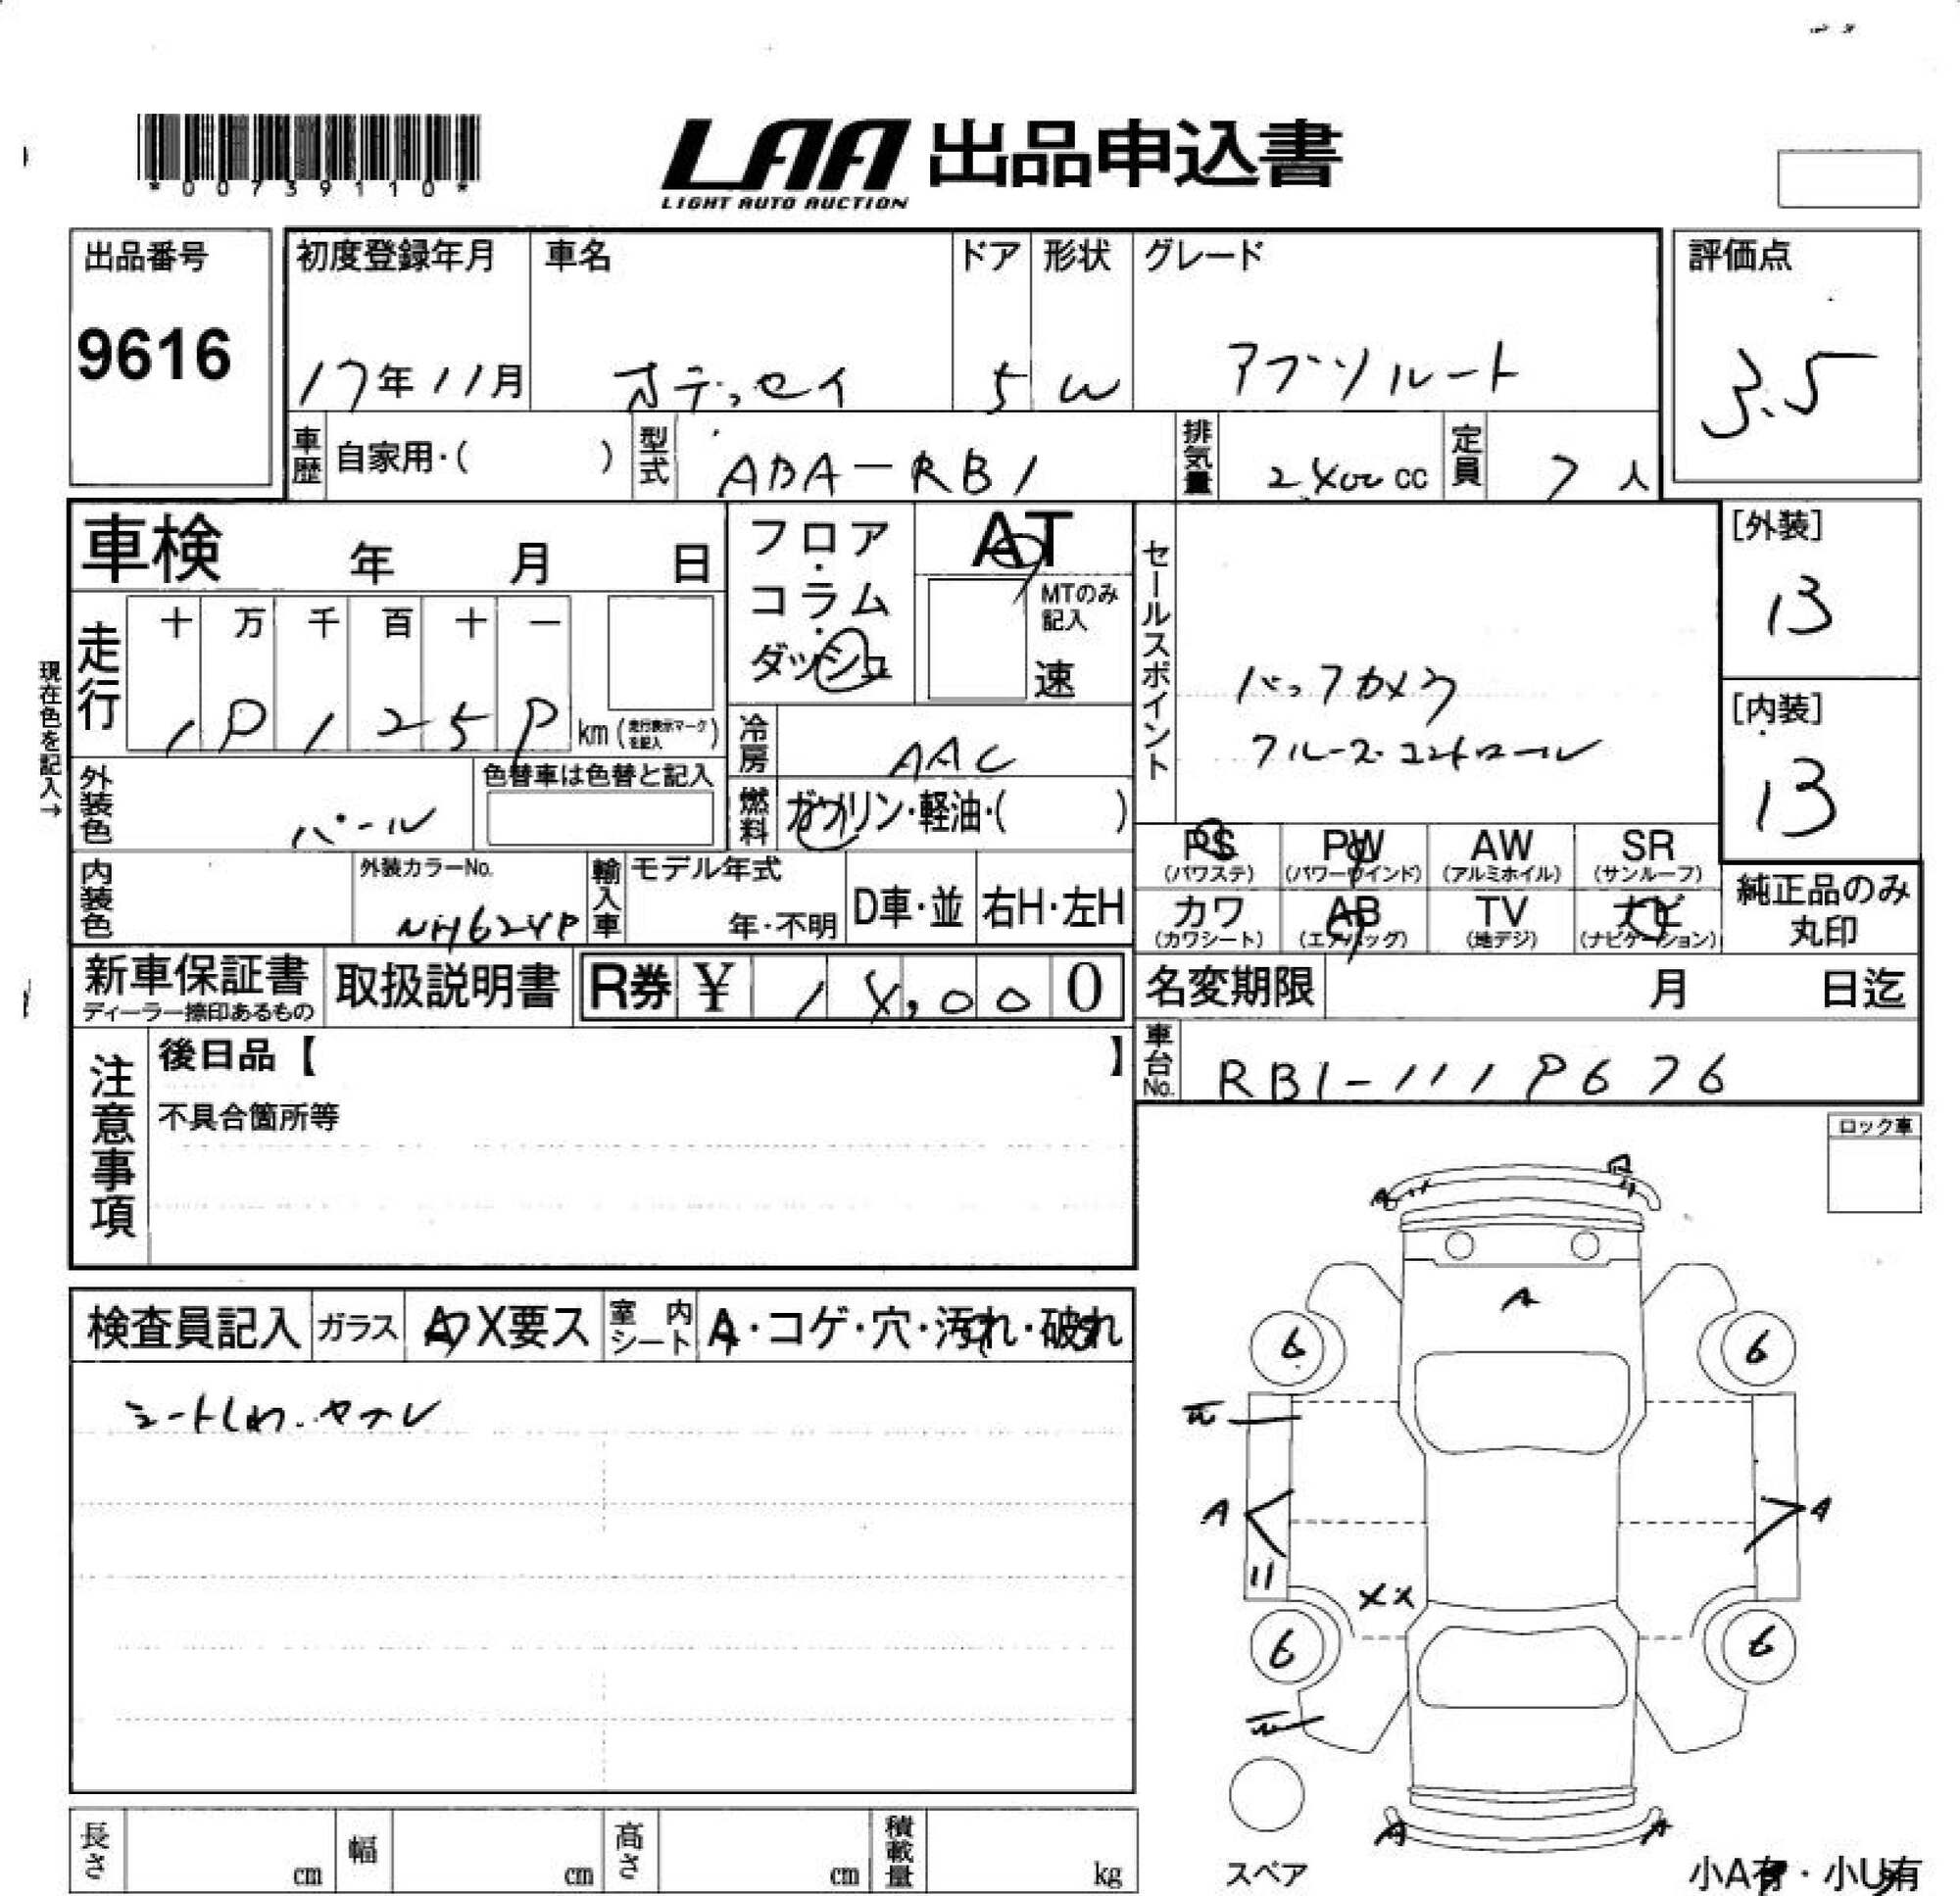 *00739110*
LAA 出品申込書
LIGHT AUTO AUCTION
出品番号
9616
初度登録年月 車名 ドア 形状 グレード
17年11月 オデッセイ 5 W アブソルート
評価点
3.5
車歴 自家用・( ) 型式 ABA-RB1 排気量 2,400cc 定員 7人
車検 年 月 日
フロア・コラム・ダッシュ
AT
MTのみ記入
速
セールスポイント
バックカメラ
クルーズ・コントロール
[外装]
13
[内装]
13
現在色を記入→
走行 十 万 千 百 十 一
km(走行表示マークを記入)
冷房 AAC
外装色 パール
色替車は色替と記入
燃料 ガソリン・軽油・( )
PS (パワステ) PW (パワーウインド) AW (アルミホイル) SR (サンルーフ)
カワ (カワシート) AB (エアバッグ) TV (地デジ) ナビ (ナビゲーション)
純正品のみ丸印
内装色 外装カラーNo. 輸入車 モデル年式
年・不明 D車・並 右H・左H
新車保証書
ディーラー捺印あるもの
取扱説明書 R券 ¥ 14,000
名変期限 月 日迄
車台No.
注意事項
後日品【 】
不具合箇所等
ロック車
検査員記入 ガラス A X要ス 室内シート A・コゲ・穴・汚れ・破れ
シートしわ.ヤブレ
A
6 6
A A
XX
6 6
A A
スペア
長さ cm 幅 cm 高さ cm 積載量 kg
小A有・小U有